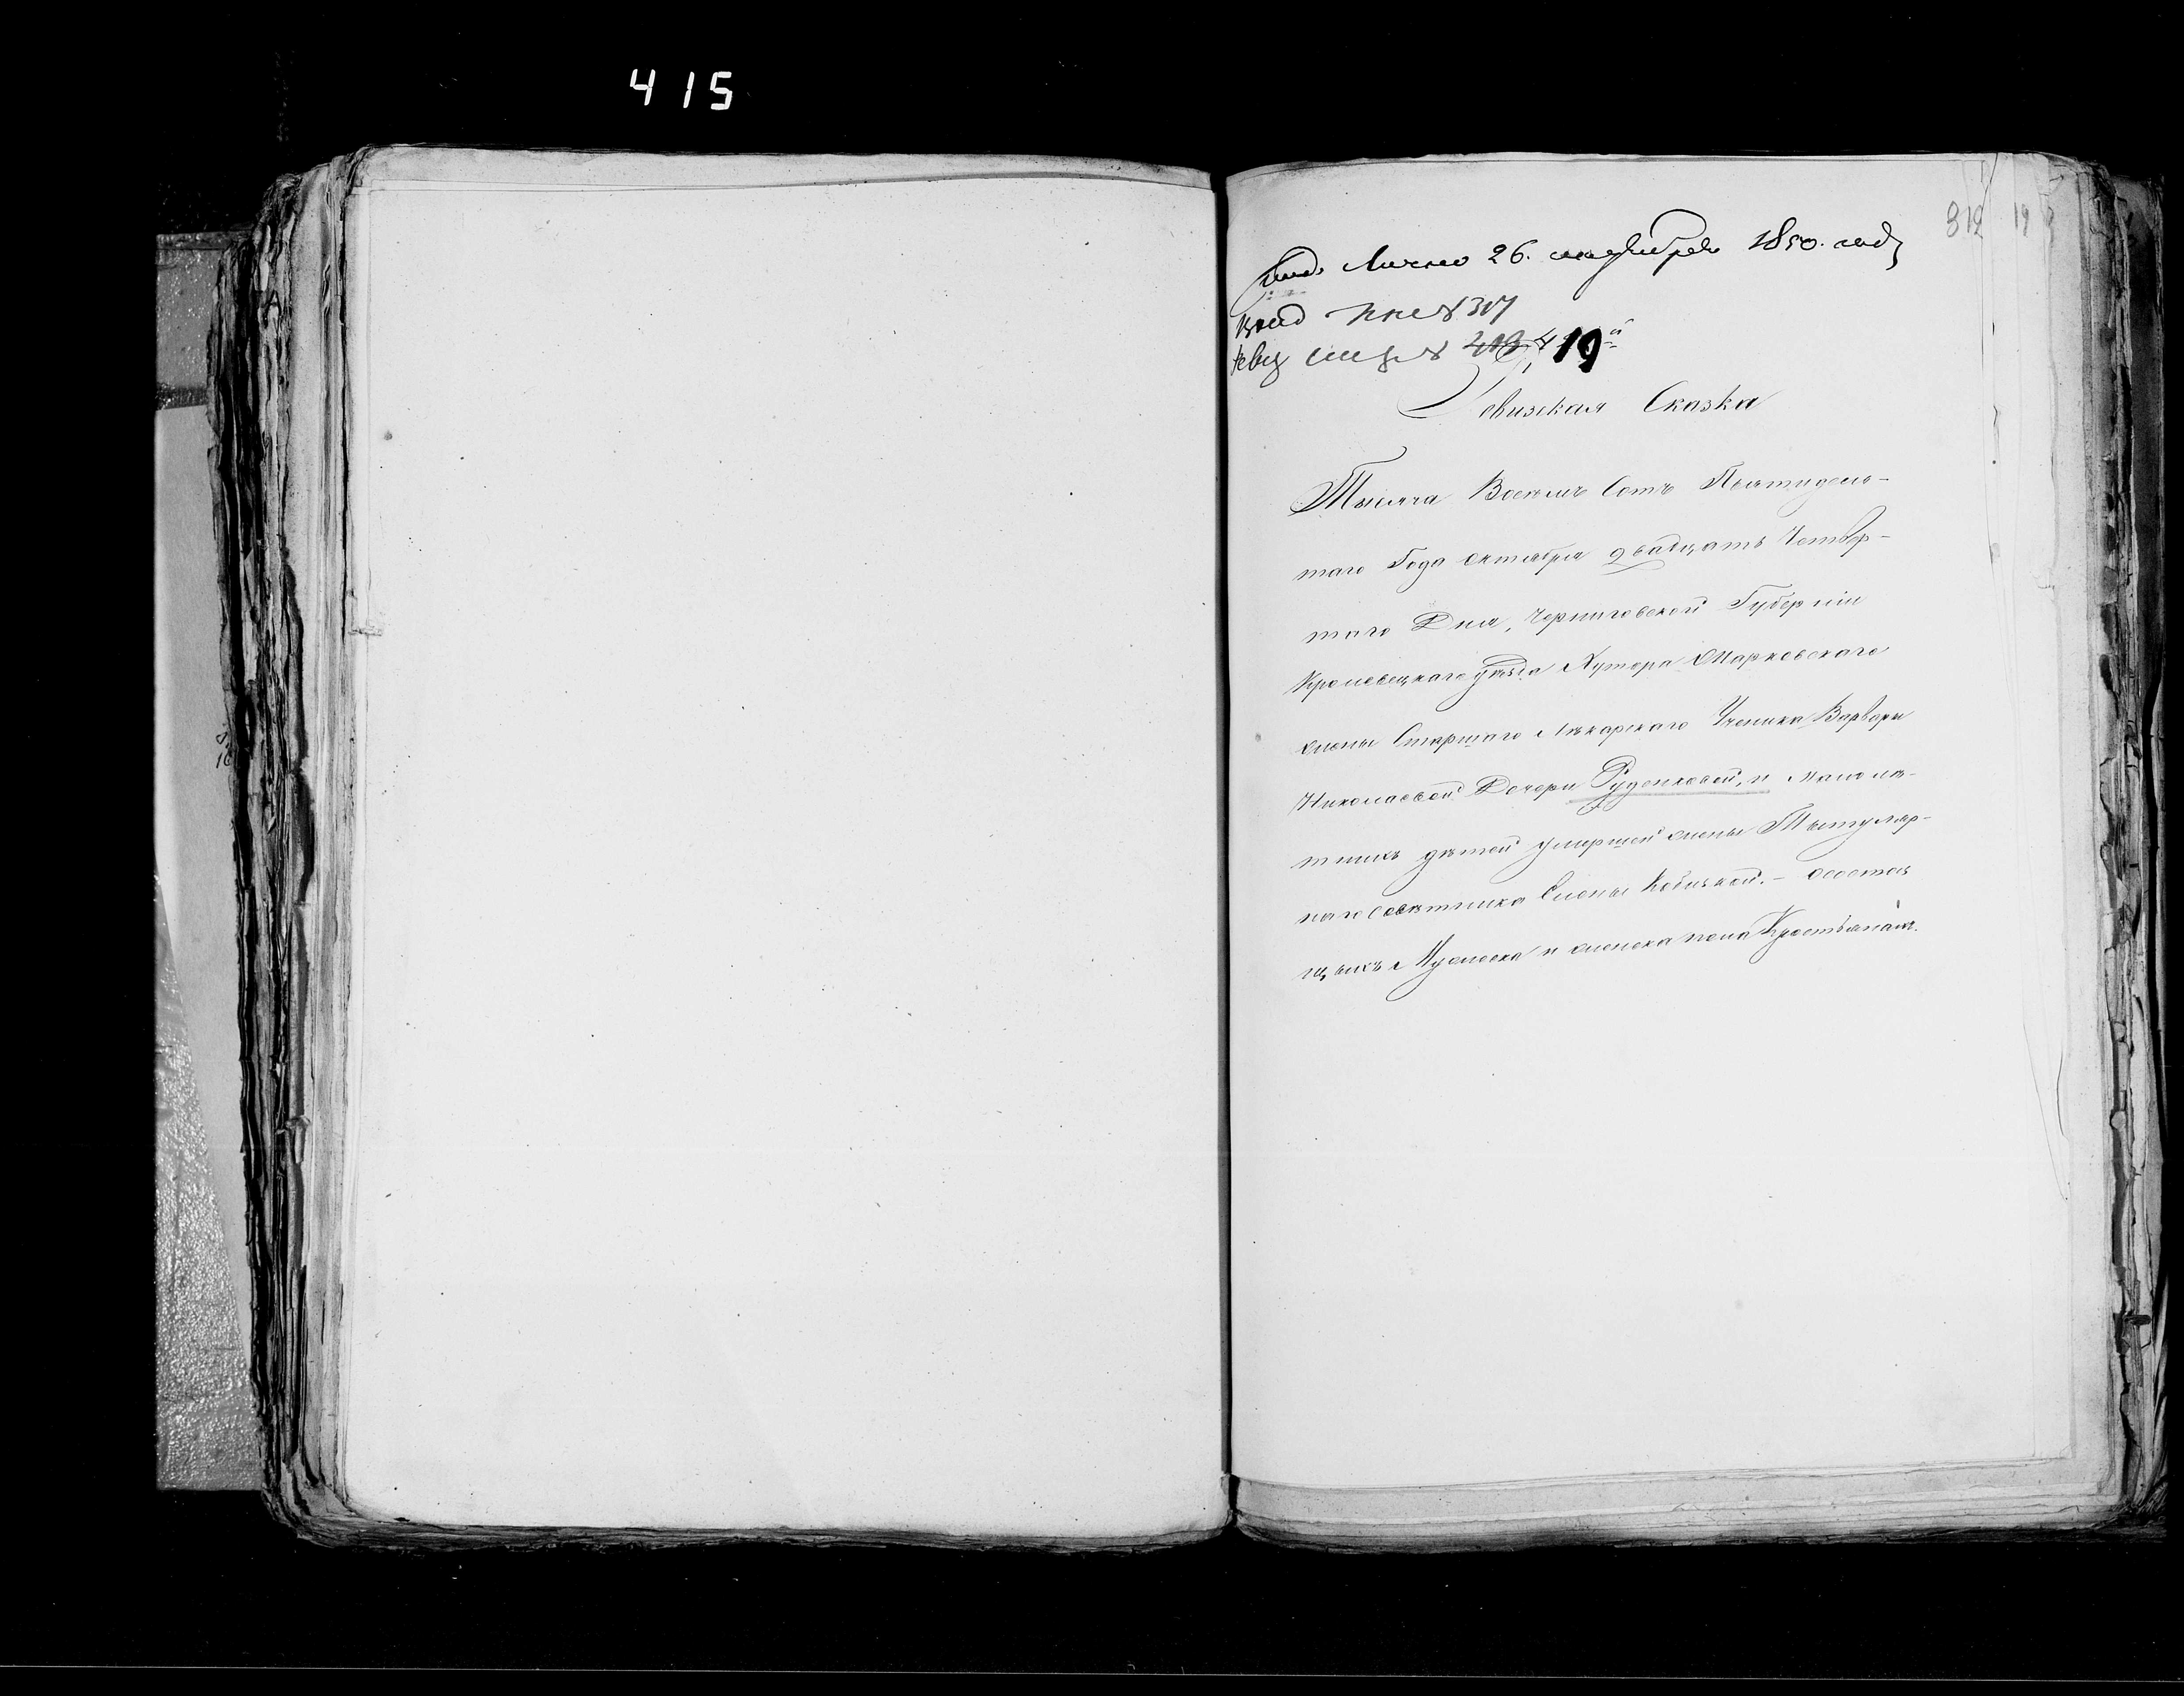 415
312 19
Лично 26. октября 1850. году
№ 317
19й
Ревизская Сказка
Тысяча Восемъ Сотъ Пьятидеся-
таго Года октября двадцать Четвер-
таго Дня, Черниговской Губерніи
Кролевецкаго уѣзда Хутора Марковскаго
жены Старшаго Лѣкарскаго Ученика Варвары
Николаевой Дочери Руденковой, и малолѣ-
тнихъ дѣтей умершей жены Тытуляр-
наго Совѣтника Елены . - состоя
щихъ Мужеска и женска пола Крестьянахъ.